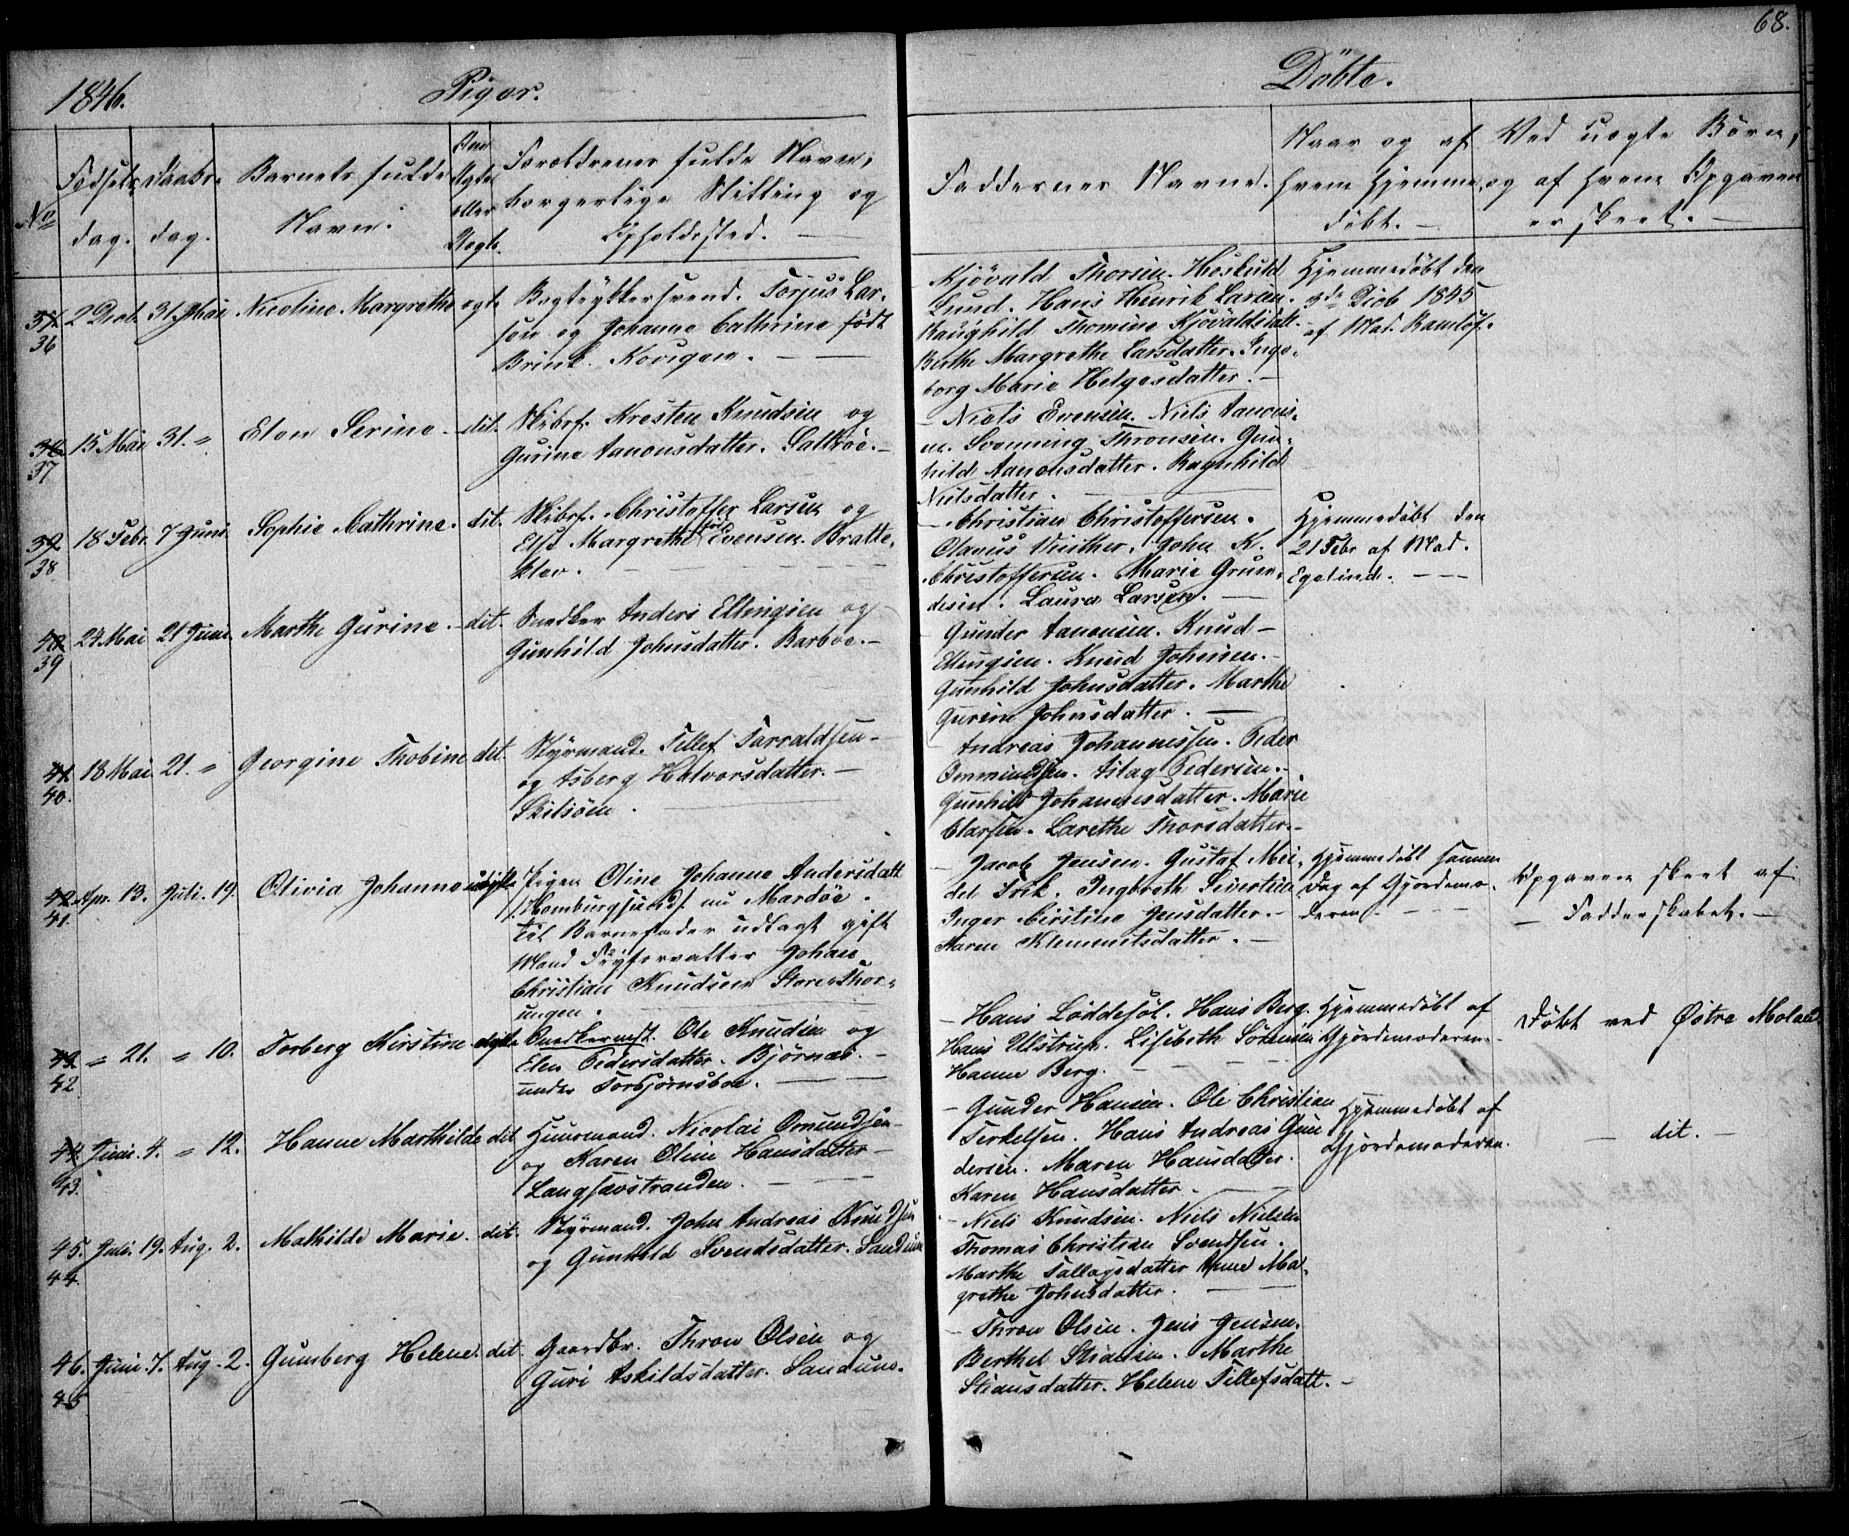 68.
1846.
Piger.
Döbte.
No
Födsels dag.
Daabs dag.
Barnets fulde Navn.
Om Ægte eller Uægte.
Forældrenes fulde Navn, borgerlige Stilling og Opholdssted.
Faddernes Navne.
Naar og af hvem hjemme döbt.
Ved uægte Börn, og af hvem Opgaven er skeet.
37 36
31. Mai
Nicoline Margrethe
ægte
Bogtrykkersvend. Torjus Lar-
sen og Johanne Cathrine födt
Brink.
Thorsen. Höskuld
Lund. Hans Henrik Larsen.
Thomine Kjövaldsdatt.
Berthe Margrethe Larsdatter. Inge-
borg Marie Helgesdatter.
Hjemmedöbt den
1845
af Mad.
37
15 Mai
31. "
Elen Serine.
dit.
Skibsf. Kresten Knudsen og
Gurine Aanonsdatter.
Niels Evensen. Niels Aanons-
en. Svenning Thronsen. Gun-
hild Aanonsdatter. Ragnhild
Nielsdatter.
39 38
18 Febr.
7 Juni
Sophie Cathrine.
dit.
Skibsf. Christoffer Larsen og
Else Margrethe födt Evensen. Bratte-
klev.
Christian Christoffersen.
Olaus Winther. John K.
Christoffersen. Marie Grun-
desen. Laura Larsen.
Hjemmedöbt den
21 Febr af Mad.
Egelind.
40 39
24 Mai
21 Juni
Marthe Gurine.
dit.
Snedker Anders Ellingsen og
Gunhild Johnsdatter. Barboe.
Gunder Aanonsen. Knud
Ellingsen. Knud Johnsen.
Gunhild Johnsdatter. Marthe
Gurine Johnsdatter.
41 40.
18 Mai
21. "
Georgine Thobine
dit.
Styrmand. Tellef Tarraldsen
og Asberg Halvorsdatter.
Skilsöen.
Andreas Johannessen. Peder
Ommundsen. Aslag Pedersen.
Gunhild Johannesdatter. Marie
Olarsen. Larethe Thorsdatter.
42. 41.
Apr. 13.
Juli. 19.
Olivia Johanne
uægte
Pigen Oline Johanne Andersdatt
/:Homburgsund/. nu Mardöe.
Til Barnefader udlagt gift
Mand Fyrforvalter Johan
Christian Knudsen Store-Thor-
ungen.
Jacob Jensen. Gustaf Mei-
del Ingbreth Sivertsen
Inger Kirstine Jensdatter.
Maren Klemmetsdatter.
Hjemmedöbt samme
Dag af Gjordemo-
deren.
Opgaven skeet af
Fadderskabet.
43 42
" 21.
" 10.
Torberg Kirstine
ægte
Snedkermst. Ole Knudsen og
Elen Pedersdatter. Björnæs.
under Torbjörnsboe.
Hans Löddesöl. Hans Berg.
Hans Ullstrup. Lisebeth Sörensen
Hanne Berg.
Hjemmedöbt af
Gjordemoderen.
Döbt ved Østre Moland
44 43.
Juni. 4.
" 12.
Hanne Marthilde
dit
Huusmand. Nicolai Omundsen
og Karen Oline Hansdatter
Langsævstranden.
Gunder Hansen. Ole Christian
Terkelsen. Hans Andreas Gun
dersen. Maren Hansdatter.
Karen Hansdatter.
Hjemmedöbt af
Gjordemoderen.
dit.
45. 44.
Juli. 19.
Aug. 2.
Mathilde Marie.
dit.
Styrmand. John Andreas Knudsen
og Gunhild Svendsdatter. Sandum
Niels Knudsen. Niels Nielsen
Thomas Christian Svendsen.
Marthe Tallagsdatter Anne Ma-
grethe Johnsdatter.
46. 45
Juni. 7.
Aug. 2.
Gunsberg Helene.
dit
Gaardbr. Thron Olsen og
Guri Askildsdatter. Sandum.
Thron Olsen. Jens Jensen.
Berthel Stiansen. Marthe
Stiansdatter. Helene Tellefsdatt.